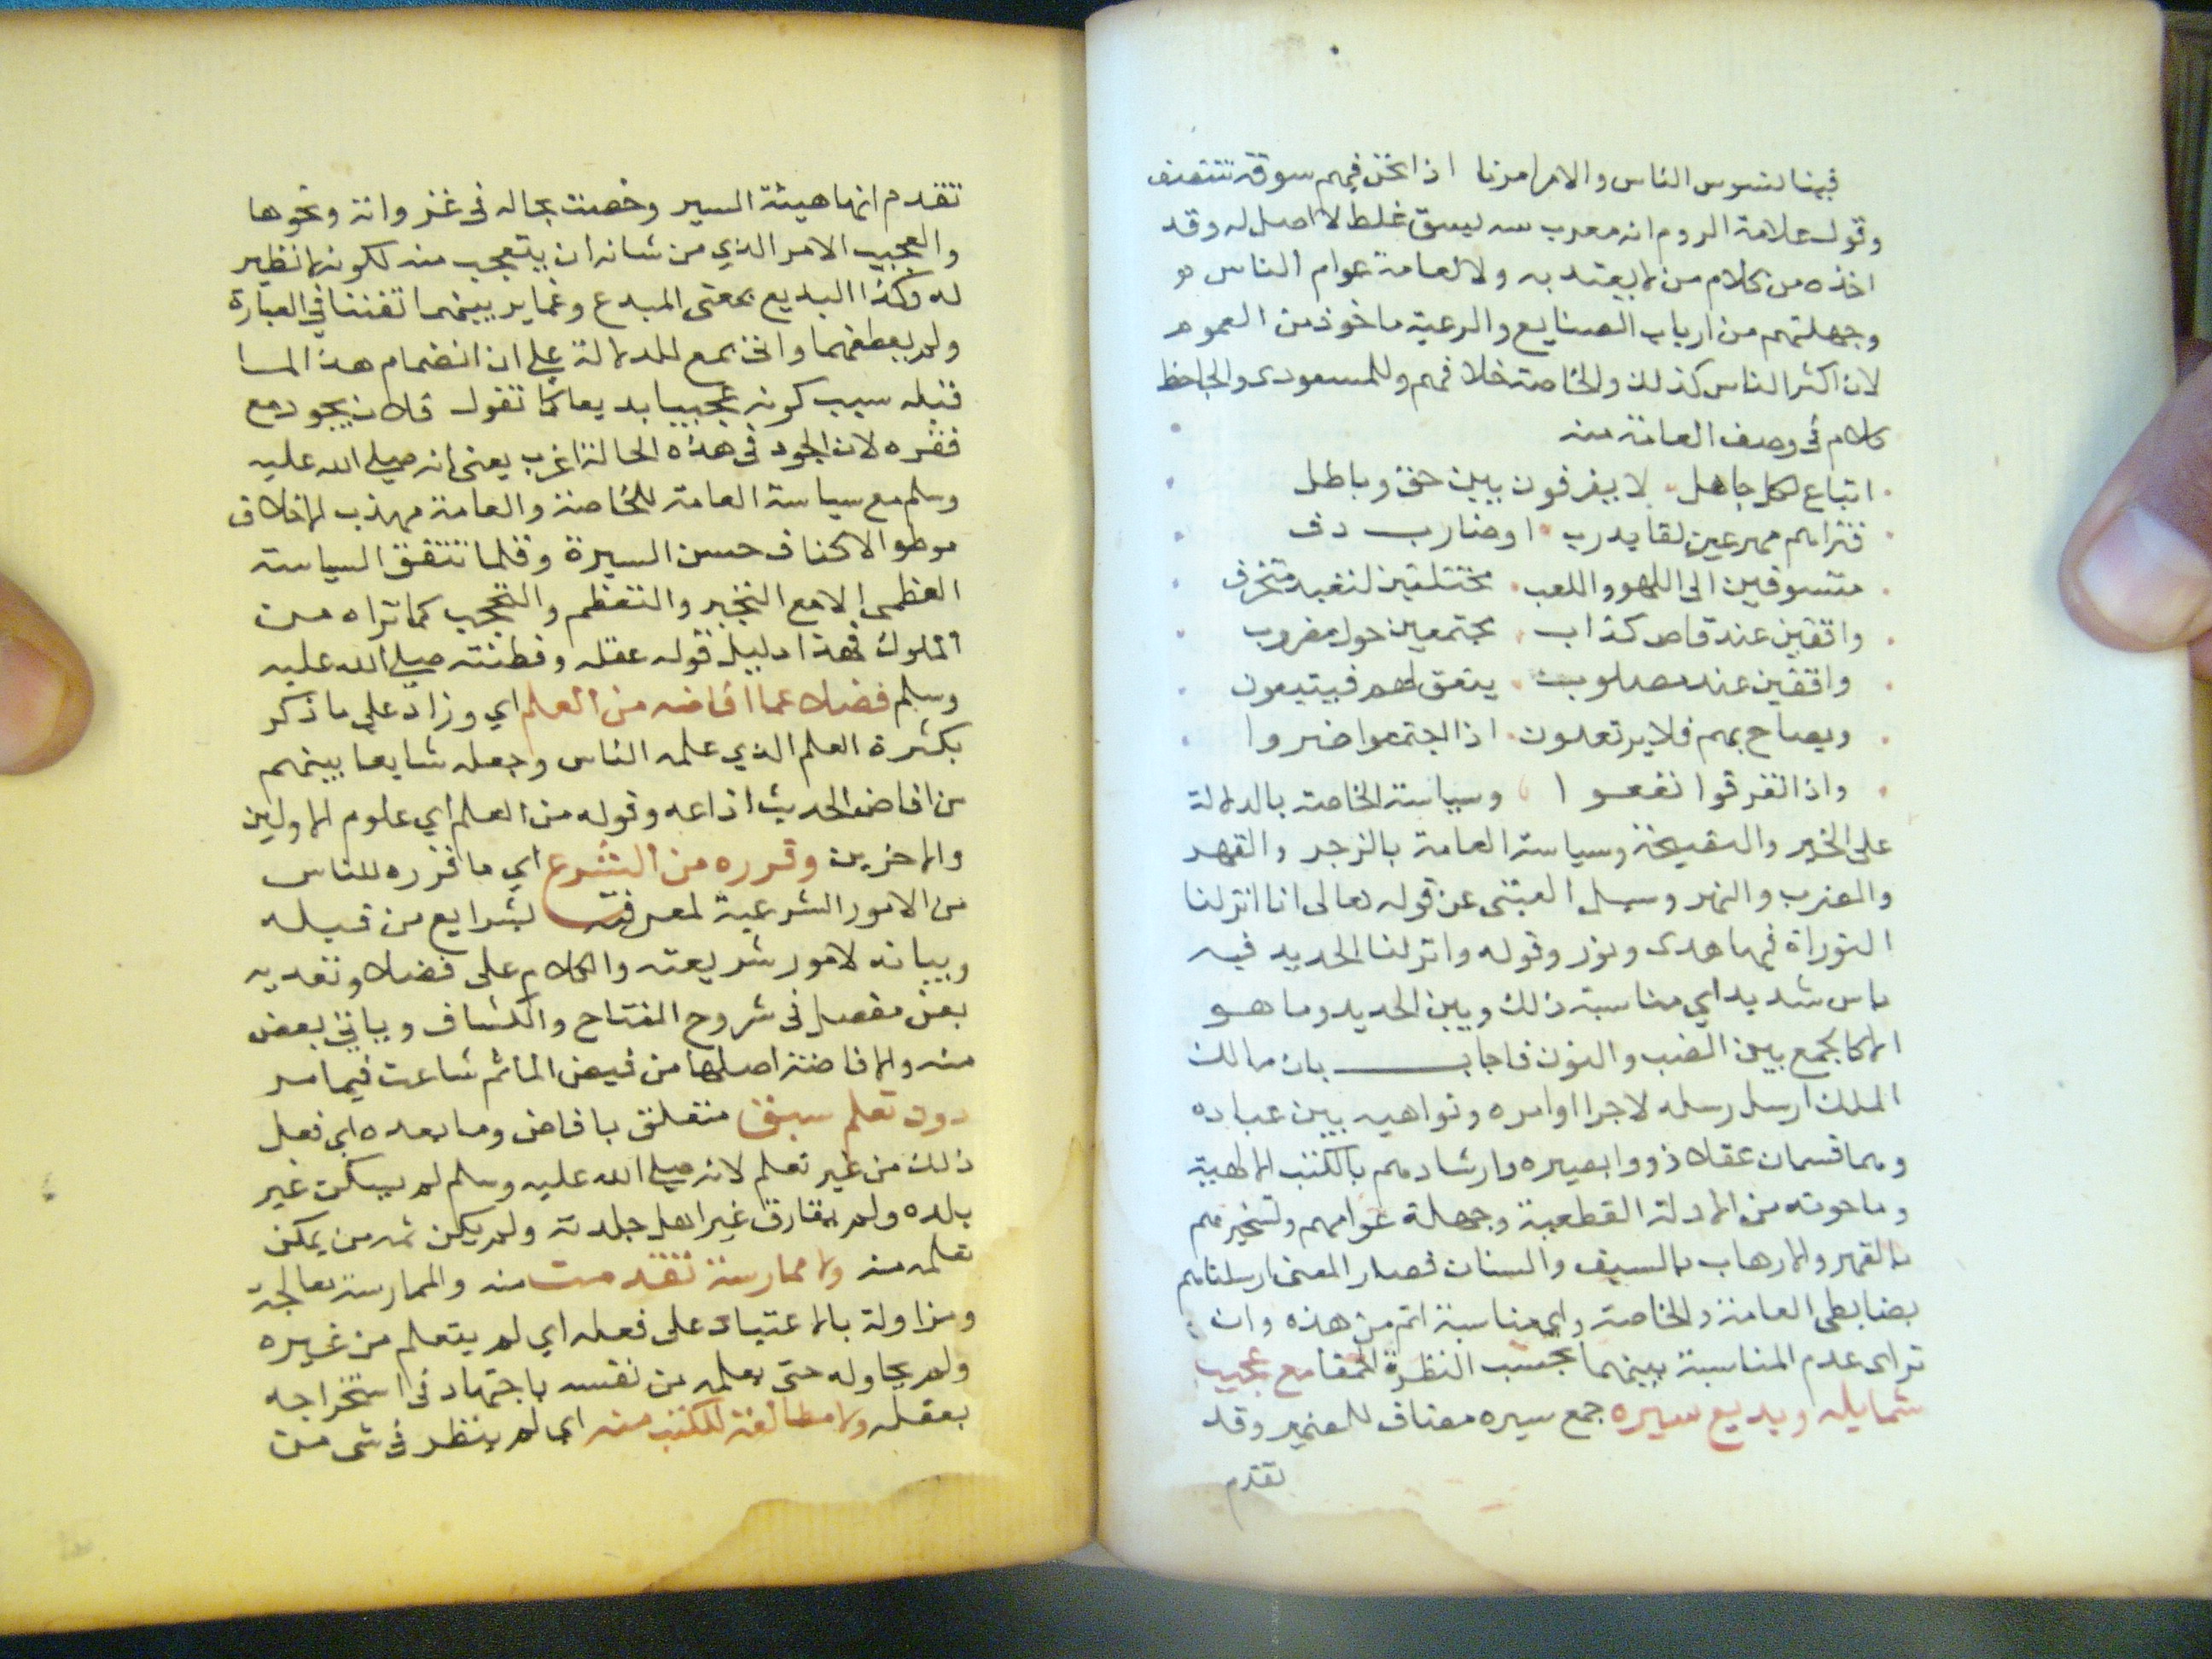 فبينا نسوس الناس والامر امرنا اذا نحن فيهم سوقة نتنصف
وقول علامة الروم انه معرب سه ليسق غلط لا اصل له وقد
اخذه من كلام من لا يعتد به ولا لعامة عوام الناس
وجهلتهم من ارباب الصنايع والرعية ماخوذ من العموم
لان اكثر الناس كذلك والخاصة خلافهم وللمسعودى والجاحظ
كلام فى وصف العامة منه
اتباع لكل جاهل لا يفرقون بين حق وباطل
فتراهم مهرعين لقايد رب او ضارب دف
متسوقين الى اللهو واللعب مختلفين لنغبد متخرف
واقفين عند قاص كذاب مجتمعين حول مضروب
واقفين عند مصلوب ينعق لهم فيتبعون
ويصاح بهم فلا يرتعدون اذا اجتمعوا ضروا
واذا تفرقوا نفعوا وسياسة الخاصة بالدلالة
على الخير والنصيحة وسياسة العامة بالزجر والقهر
والضرب والنهر وسيل العتبى عن قوله تعالى انا انزلنا
التوراة فيها هدى ونور وقوله وانزلنا الحديد فيه
باس شديد اي مناسبة ذلك وبين الحديد وما هو
الا كالجمع بين الضب والنون فاجاب بان مالك
الملك ارسل رسله لاجرا اوامره ونواهيه بين عباده
وهما قسمان عقلا ذووا بصيره وارشادهم بالكتب الالهية
وما حوته من الادلة القطعية وجهلة عوامهم وتسخيرهم
بالقهر والارهاب بالسيف والسنان فصار المعنى ارسلناهم
بضابطى العامة والخاصة واي مناسبة اتم من هذه وان
تراى عدم المناسبة بينهما بحسب النظرة الحمقا مع عجيب
شمايله وبديع سيره جمع سيره مضاف للضمير وقد
تقدم
تقدم انها هيئة السير وخصت بحاله فى غزواته ونحوها
والعجيب الامر الذي من شانه ان يتعجب منه لكونه لا نظير
له وكذا البديع بمعنى المبدع وغاير بينهما تفننا في العبارة
ولم يعطفهما واتى بمع للدلالة على ان انضمام هذا لما
قبله سبب كونه عجيبا بديعا كما تقول فلان يجود مع
فقره لان الجود فى هذه الحالة اغرب يعنى انه صلى الله عليه
وسلم مع سياسة العامة للخاصة والعامة مهذب الاخلاق
موطو الاكناف حسن السيرة وقلما تتفق السياسة
العظمى الا مع التجبر والتعظم والتحجب كما تراه من
الملوك فهذا دليل قوله عقله وفطنته صلى الله عليه
وسلم فضلا عما افاضه من العلم اي وزاد على ما ذكر
بكثرة العلم الذي علمه الناس وجعله شايعا بينهم
من افاض الحديث اذاعه وقوله من العلم اي علوم الاولين
والاخرين وقرره من الشرع اي ما قرره للناس
من الامور الشرعية لمعرفته بشرايع من قبله
وبيانه لامور شريعته والكلام على فضلا وتعديه
بعن مفصل فى شروح المفتاح والكشاف وياتى بعض
منه والافاضة اصلها من فيض الماثم شاعت فيما مر
دون تعلم سبق متعلق بافاض وما بعده اي فعل
ذلك من غير تعلم لانه صلى الله عليه وسلم لم يسكن غير
بلده ولم يفارق غير اهل جلدته ولم يكن ثمه من يمكن
تعلمه منه ولا ممارسة تقدمت منه والممارسة معالجة
ومزاولة بالاعتياد على فعله اي لم يتعلم من غيره
ولم يحاوله حتى يعلمه من نفسه باجتهاد فى استخراجه
بعقله ولا مطالعة للكتب منه اي لم ينظر فى شى من